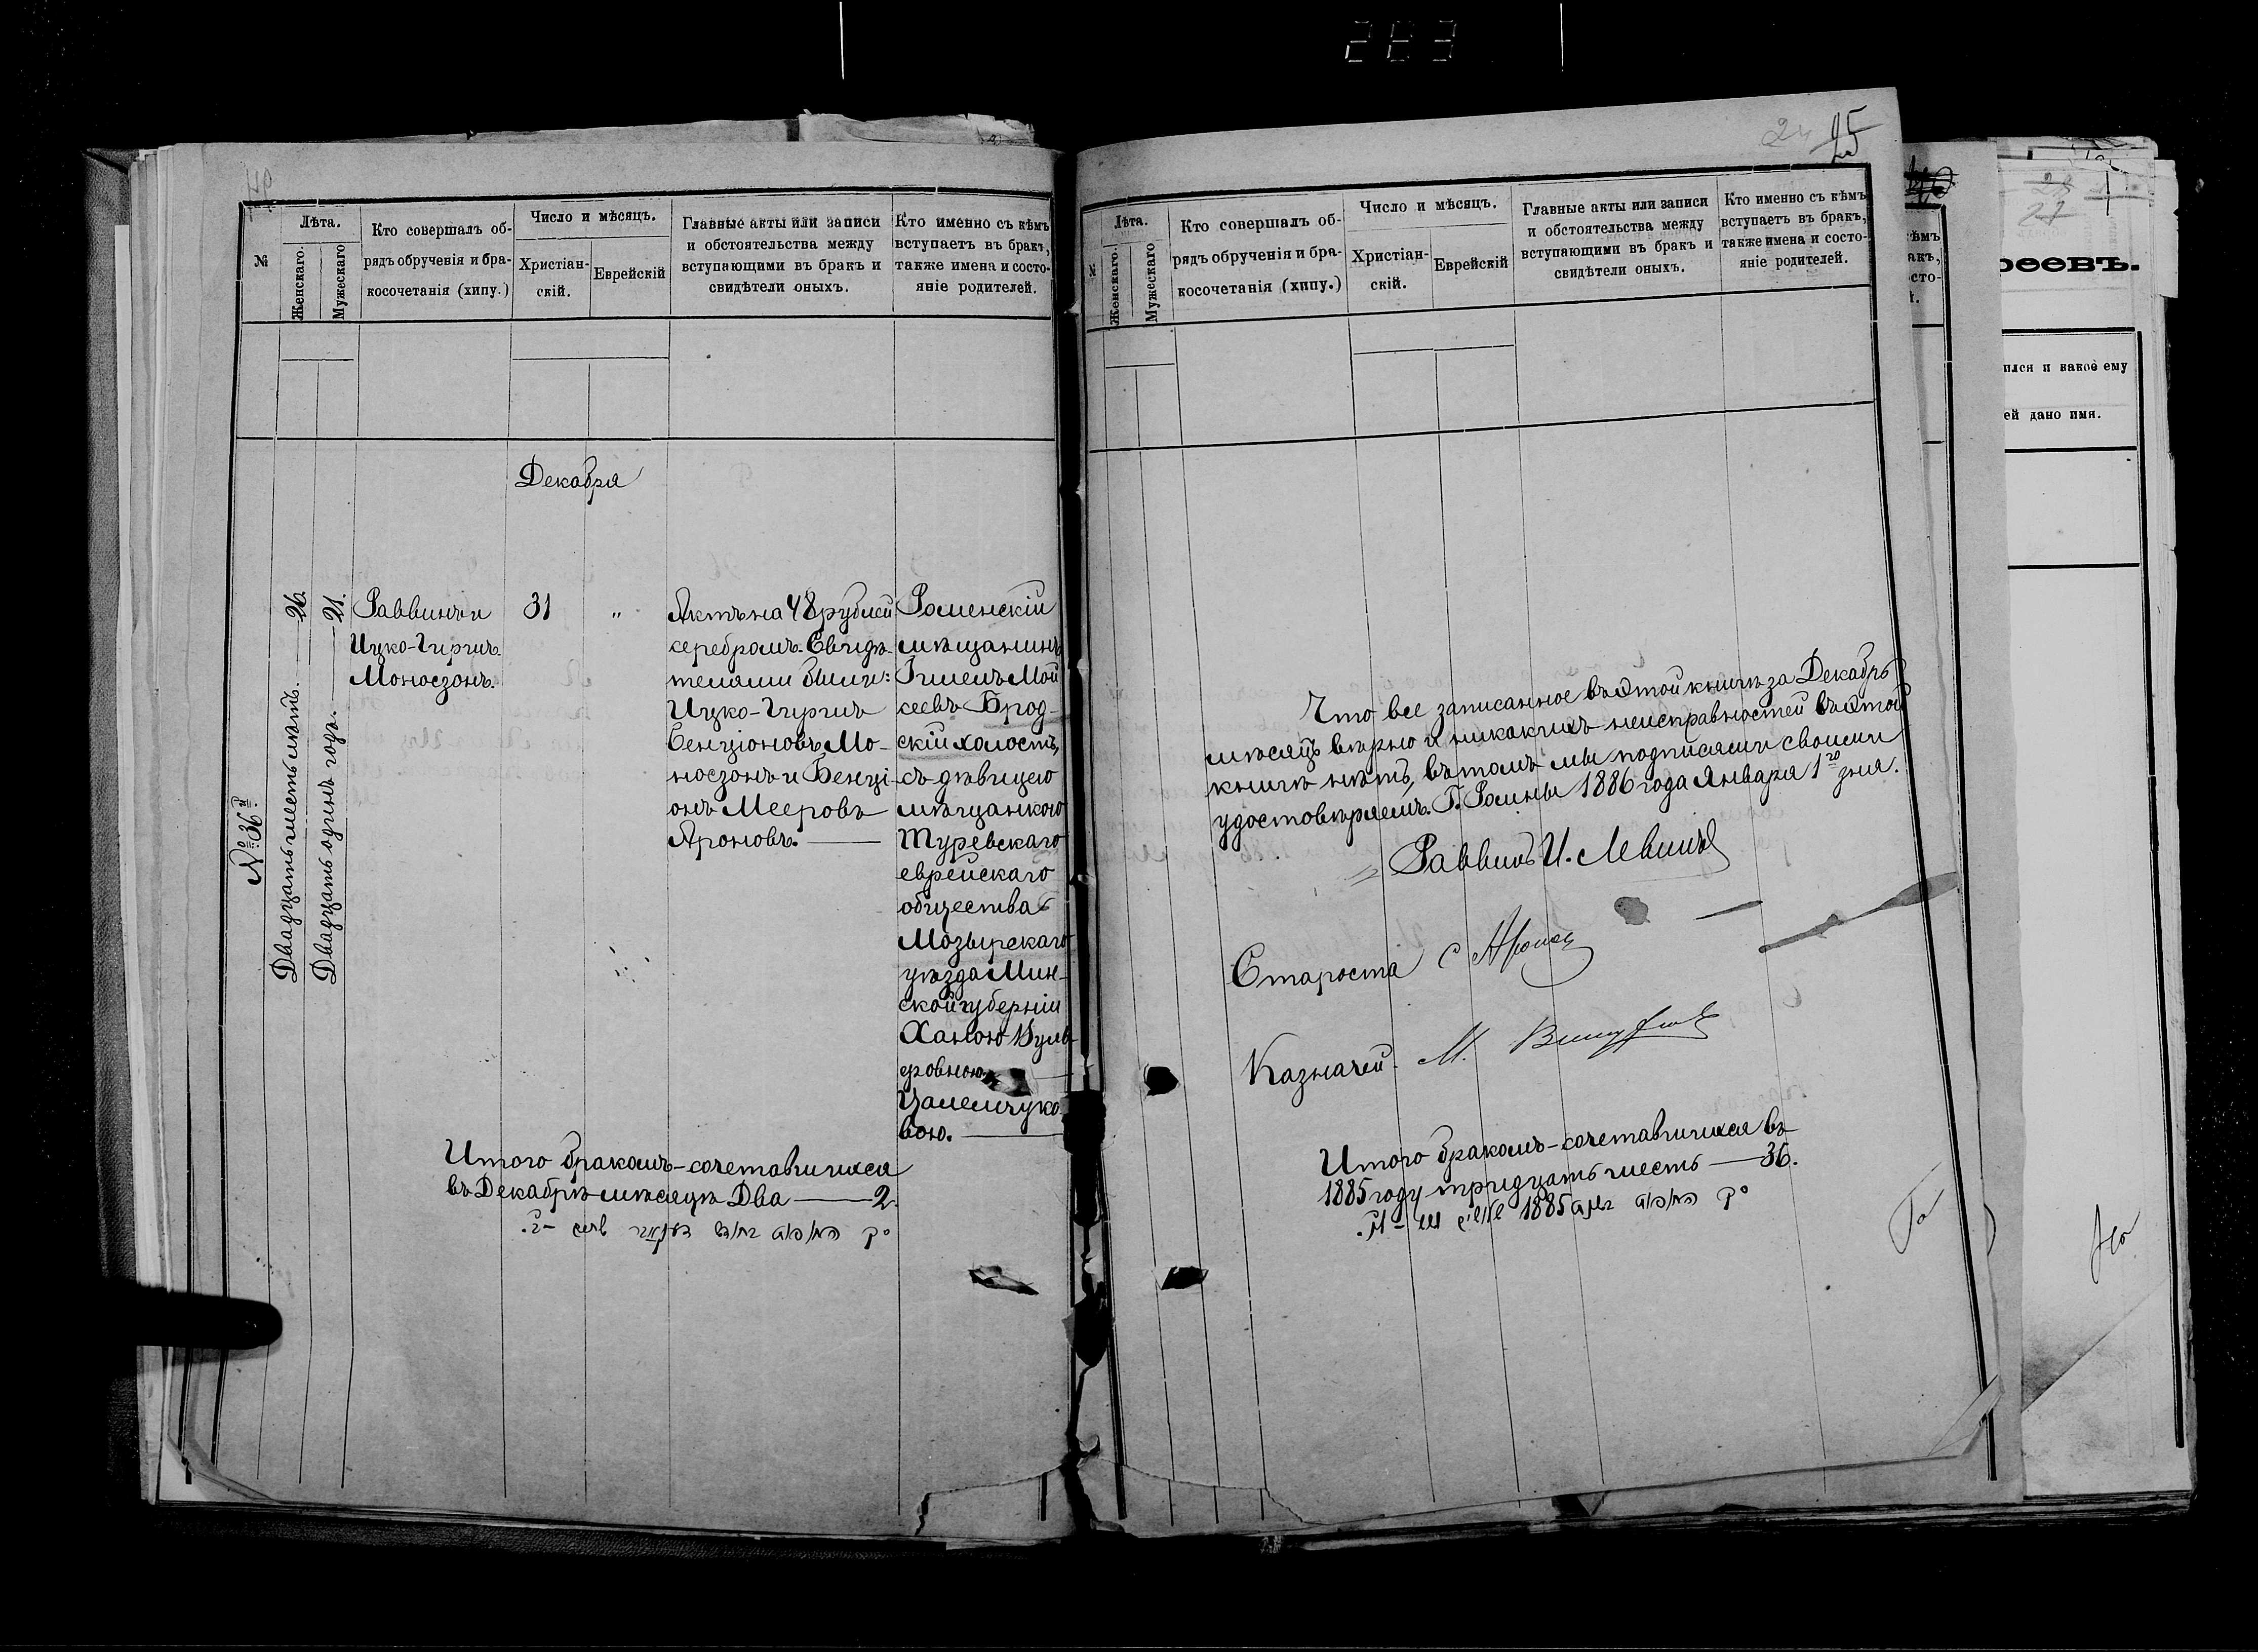 283
№
Лѣта.
Женскаго.
Мужескаго
Кто совершалъ об-
рядъ обрученія и бра-
косочетанія (хипу.)
Число и мѣсяцъ.
Христіан-
скій.
Еврейскій
Главные акты или записи
и обстоятельства между
вступающими въ бракъ и
свидѣтели оныхъ.
Кто именно съ кѣмъ
вступаетъ въ бракъ,
также имена и состо-
яніе родителей.
Декабря
№ 36й
Двадцать шесть лѣтъ. — 26.
Двадцать одинъ годъ. — 21.
Раввинъ и
Ицко-Гиршъ
Моносзонъ.
31
"
Актъ на 48 рублей
серебромъ. Свидѣ-
телями были:
Ицко-Гиршъ
Бенціоновъ Мо-
носзонъ и Бенці-
онъ Мееровъ
Ароновъ. —
Роменскій
мѣщанинъ
Мой
сеевъ Брод-
скій холостъ,
съ дѣвицею
мѣщанкою
Туревскаго
еврейскаго
общества
Мозырскаго
уѣзда Мин-
ской губерніи
Ханою Вуль-
фовною
вою. —
Итого бракомъ-сочетавшихся
въ Декабрѣ мѣсяцѣ Два — 2.
24 25
№
Лѣта.
Женскаго.
Мужескаго
Кто совершалъ об-
рядъ обрученія и бра-
косочетанія (хипу.)
Число и мѣсяцъ.
Христіан-
скій.
Еврейскій
Главные акты или записи
и обстоятельства между
вступающими въ бракъ и
свидѣтели оныхъ.
Кто именно съ кѣмъ
вступаетъ въ бракъ,
также имена и состо-
яніе родителей.
Что все записанное въ этой книгѣ за Декабрь
мѣсяцъ вѣрно и никакихъ неисправностей въ этой
книгѣ нѣтъ, въ томъ мы подписями своими
удостовѣряемъ. Г. Ромны 1886 года Января 1го дня.
Раввинъ И. Левинъ
Староста С
Казначей М.
Итого бракомъ-сочетавшихся въ
1885 году тридцать шесть — 36.
1885
реевъ.
ился и какое ему
ей дано имя.